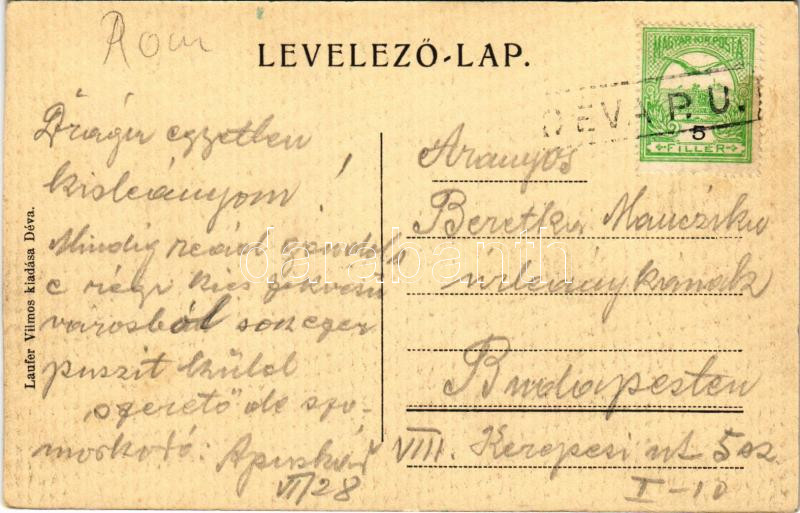 Rom
LEVELEZŐ-LAP.
MAGYAR KIR. POSTA
DÉVA P. U.
5
FILLÉR
Laufer Vilmos kiadása Déva.
Drága egyetlen
kisleányom!
Mindig reád gondol
e régi kies fekvésű
városból sok ezer
puszit küld
szerető de szo-
morkodó:
Apuskád
VI/28
Aranyos
Beretka Mauczika
úrleánykának
Budapesten
VIII. Kerepesi út 5 sz
I-10
darabanth